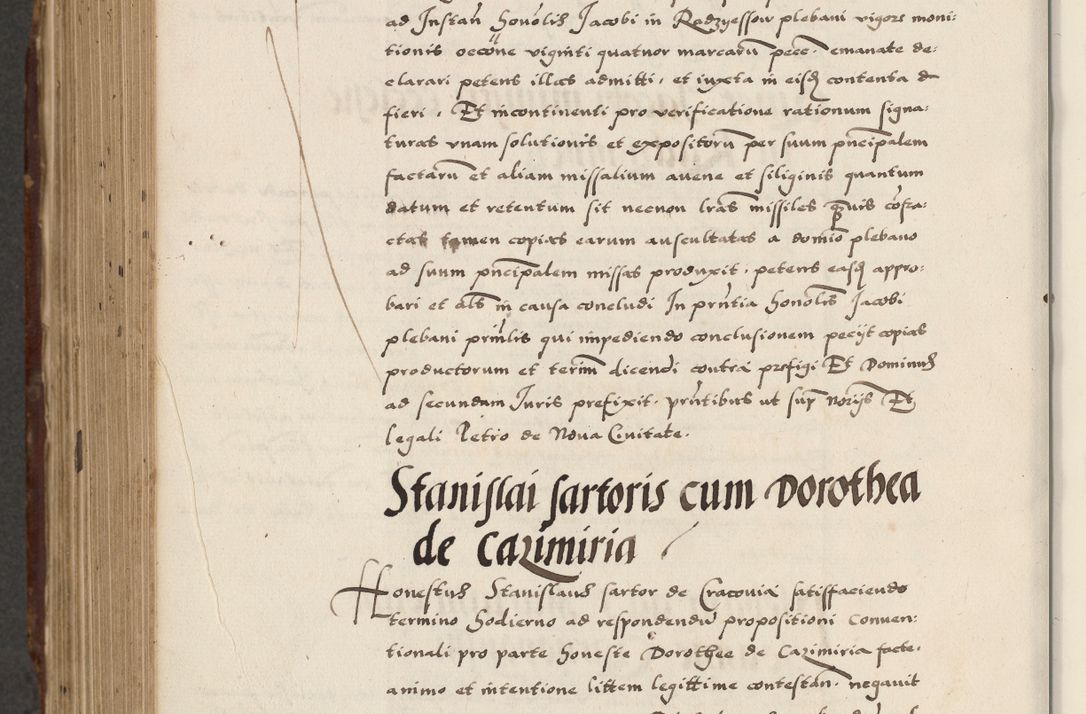 ad Instan̄ honōlis Jacobi in Rodzyessow plebani vigore moni:
tionis occōne viginti quatuor marcarū pecc. emanate de:
clarari petens illas admitti, et iuxta in eisdꝫ contenta
fieri. Et incontinenti pro verificatione rationum signa:
turas vnam solutionis et expositorū per suum pn̄cipalem
factarū et aliam missalium auene et siliginis quantum
datum et retentum sit necnon lr̄as missiles q̄uis cōfra:
ctas tamen copias earum auscultatas a domīo plebano
ad suum pn̄cipalem missas produxit, petens easdꝫ appro:
bari et al̄s in causa concludi In prn̄tia honōlis Jacobi
plebani prin̄lis qui impediendo conclusionem pecijt copias
productorum et term̄ dicendi contra prefigi Et Dominus
ad secundam Juris prefixit. prn̄tibus ut sup̄ nōrijs Et
legali Petro de Noua Ciuitate.
Stanislai sartoris cum Dorothea
de Cazimiria
Honestus Stanislaus sartor de Cracouia satisfaciendo
termino hodierno ad respondendū propositioni Conuen:
tionali pro parte honeste Dorothee de Cazimiria facte,
animo et intentione littem legittime contestan̄. negauit